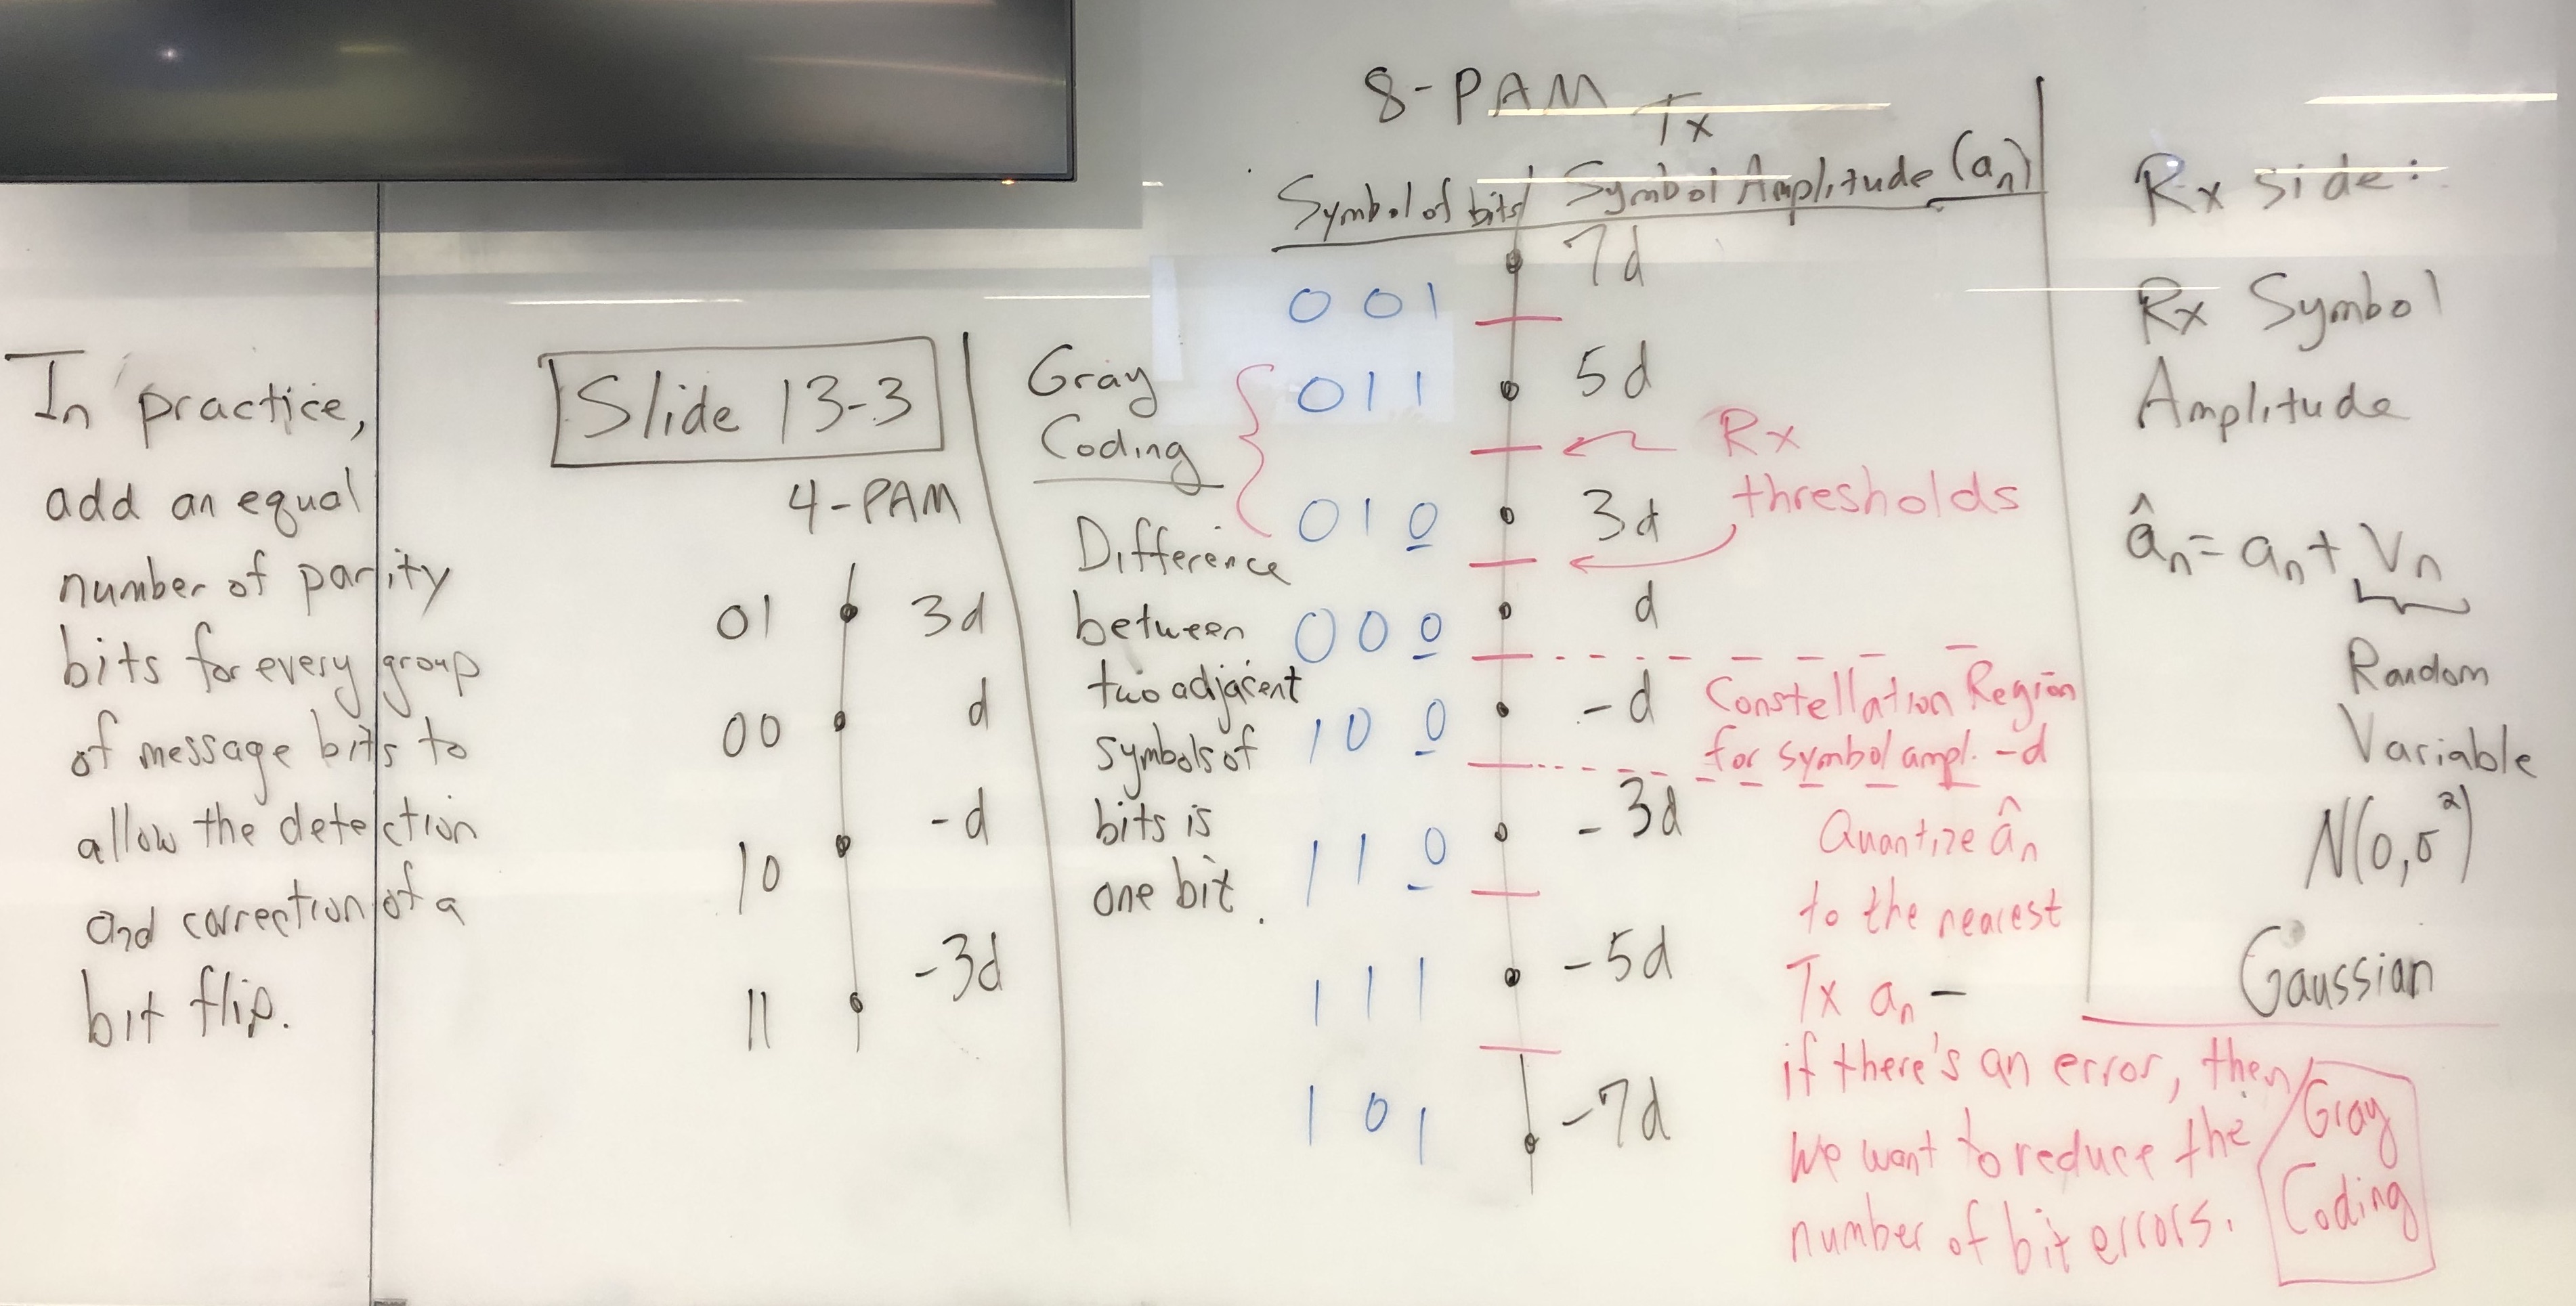 In practice,
add an equal
number of parity
bits for every group
of message bits to
allow the detection
and correction of a
bit flip.
Slide 13-3
4-PAM
01 3d
00 d
10 -d
11 -3d
Gray
Coding
Difference
between
two adjacent
symbols of
bits is
one bit.
8-PAM
Tx
Symbol of bits Symbol Amplitude (aₙ)
001 7d
011 5d
010 3d
000 d
100 -d
110 -3d
111 -5d
101 -7d
Rx
thresholds
Constellation Region
for symbol ampl. -d
Quantize âₙ
to the nearest
Tx aₙ —
if there's an error, then
we want to reduce the
number of bit errors.
Gray
Coding
Rx side:
Rx Symbol
Amplitude
âₙ = aₙ + Vₙ
Random
Variable
N(0,σ²)
Gaussian